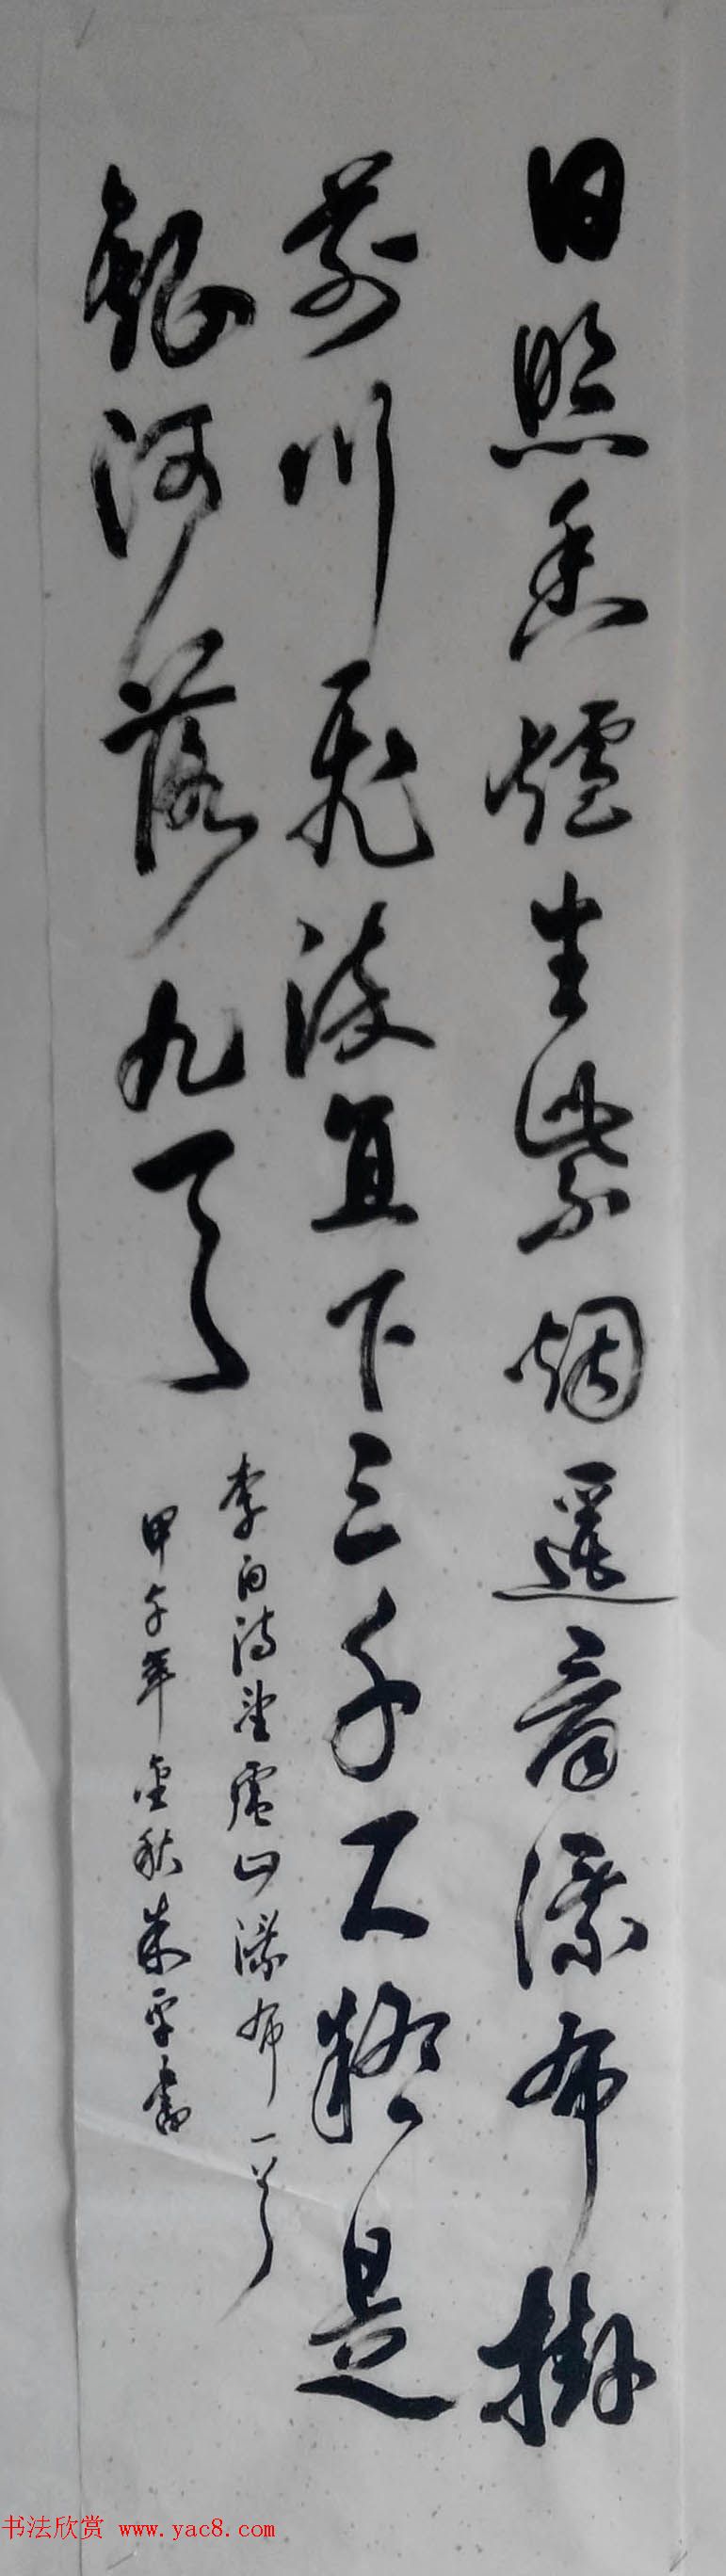 日照香爐生紫烟遥看瀑布掛
前川飛流直下三千尺疑是
銀河落九天
李白詩望廬山瀑布一首
甲午年金秋朱平書
书法欣赏 www.yac8.com